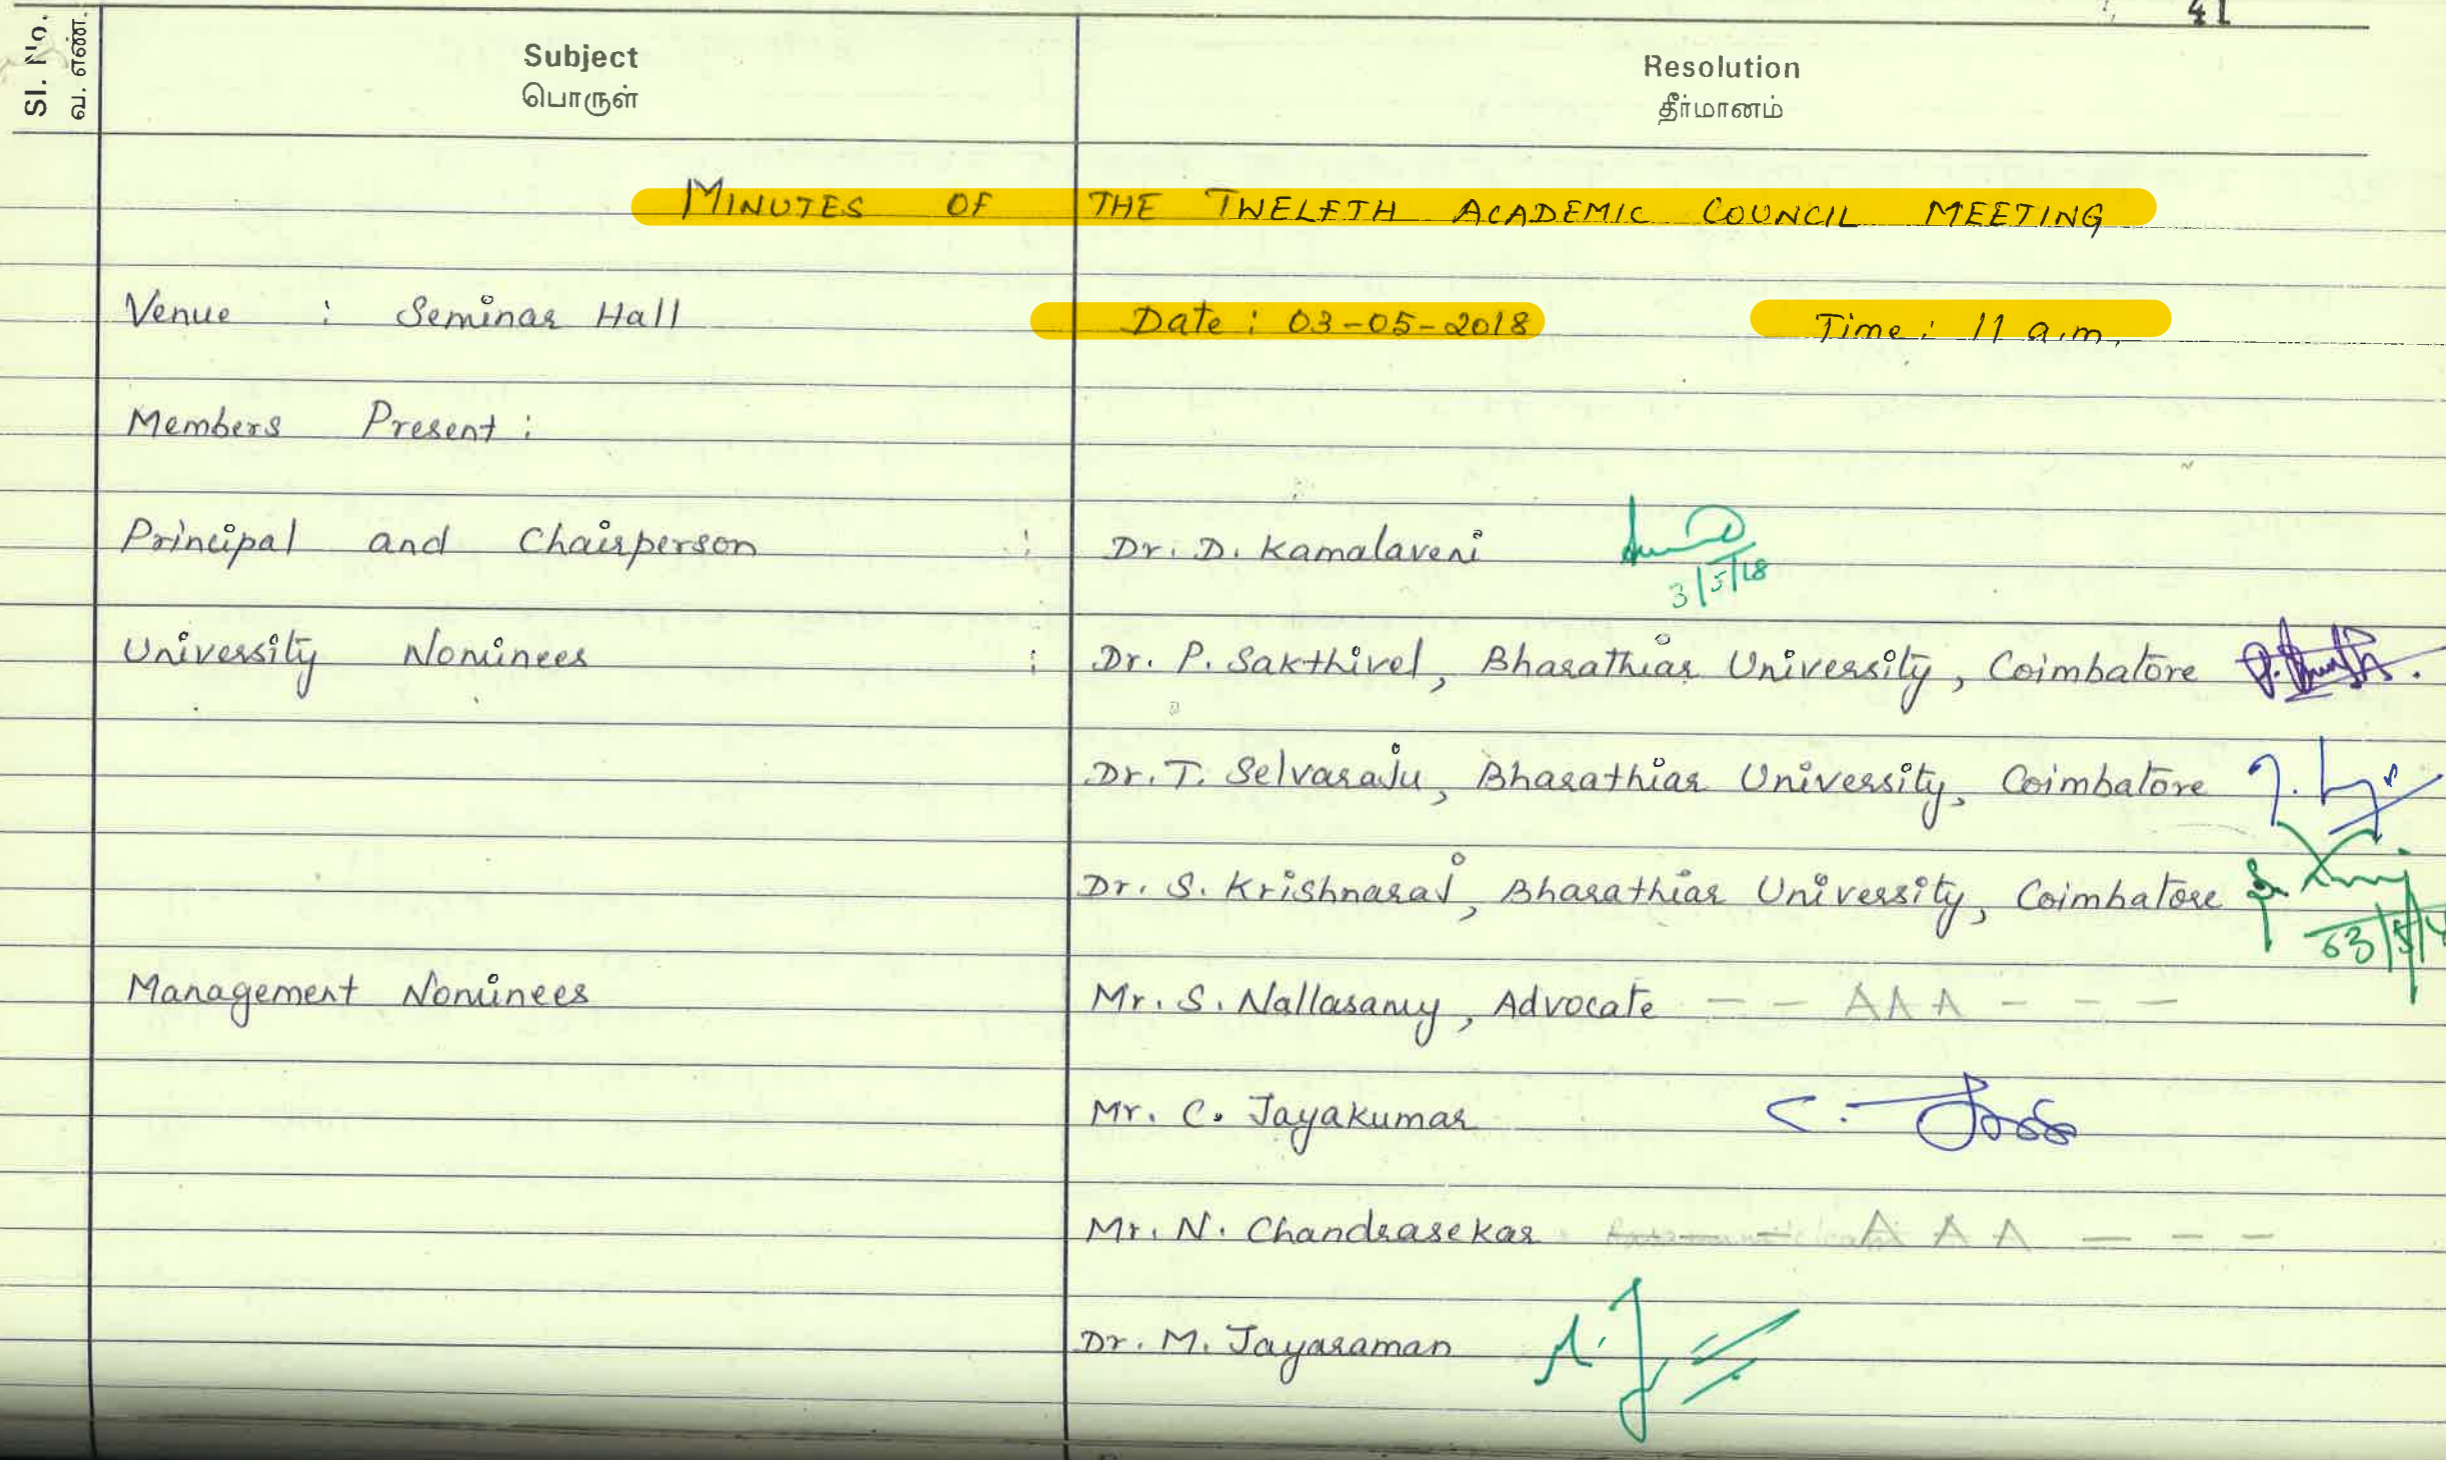 41
Sl. No.
வ. எண்.
Subject
பொருள்
Resolution
தீர்மானம்
MINUTES OF THE TWELFTH ACADEMIC COUNCIL MEETING
Venue : Seminar Hall Date : 03-05-2018 Time : 11 a.m.
Members Present :
Principal and Chairperson : Dr. D. Kamalaveni
3/5/18
University Nominees : Dr. P. Sakthivel, Bharathiar University, Coimbatore
Dr. T. Selvaraju, Bharathiar University, Coimbatore
Dr. S. Krishnaraj, Bharathiar University, Coimbatore
Management Nominees Mr. S. Nallasamy, Advocate - - AAA - - -
Mr. C. Jayakumar
Mr. N. Chandrasekar A A A - - -
Dr. M. Jayaraman